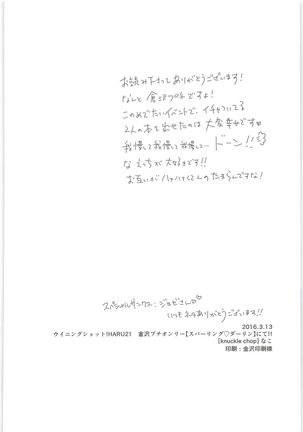 お読み下さってありがとうございます!
なんと倉沢プチですよ!
このめでたいイベントで、イチャついてる
2人の本を出せたのは大変幸せです
我慢して我慢して我慢して…ドーン!!
なえっちが大好きです!!
お互いがハァハァしてんのたまらんですな!
スペシャルサンクス:ジョビさん♡♡
いつもネタありがとうございます!!
2016.3.13
ウイニングショット!HARU21 倉沢プチオンリー【スパーリング♡ダーリン】にて!!
[knuckle chop] なこ
印刷:金沢印刷様